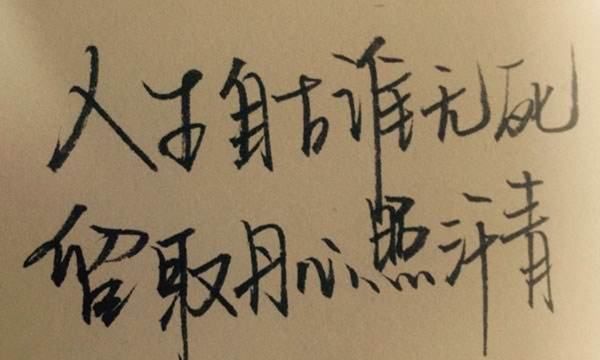 人才自古谁无死
留取丹心照汗青